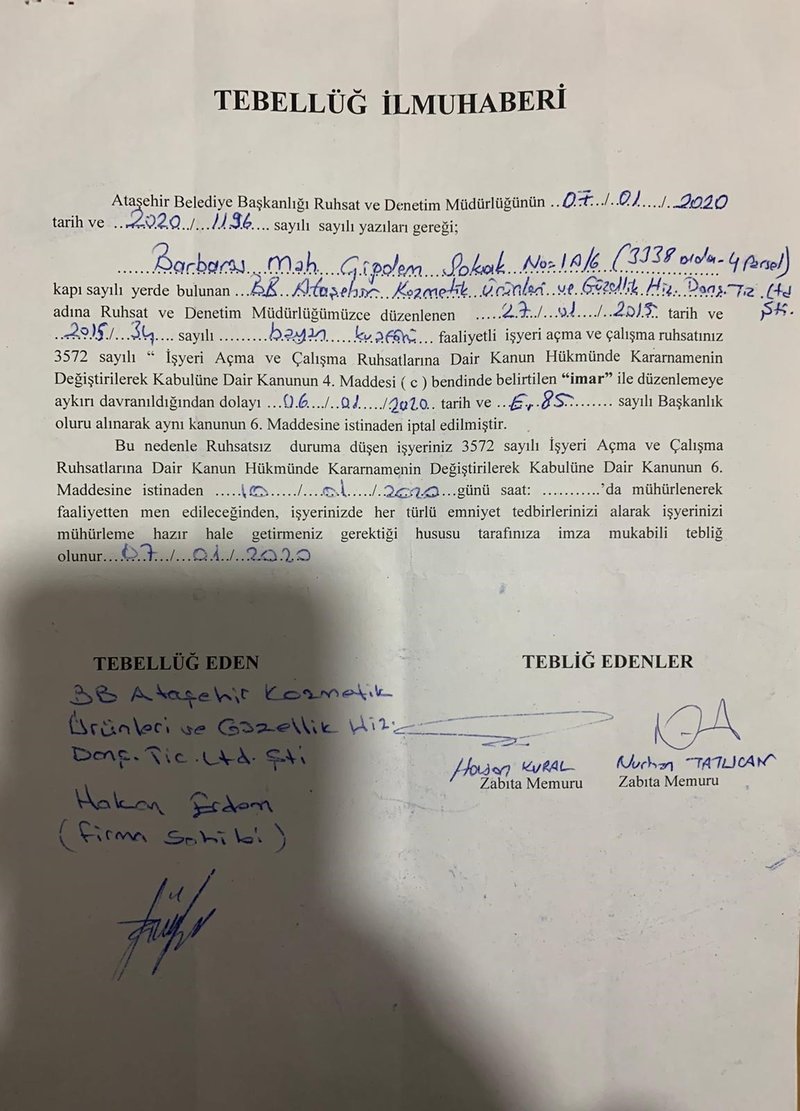 TEBELLÜĞ İLMUHABERİ
Ataşehir Belediye Başkanlığı Ruhsat ve Denetim Müdürlüğünün ..07../..01..../..2020
tarih ve ..2020../...1196.... sayılı sayılı yazıları gereği;
......Barbaros Mah. Çiğdem Sokak No: 1A/6 (3338 ada-4 Parsel)
kapı sayılı yerde bulunan ...BB Ataşehir Kozmetik Ürünleri ve Güzellik Hiz. Danş. Tic Ltd
Şti.
adına Ruhsat ve Denetim Müdürlüğümüzce düzenlenen .....27../...01..../..2015. tarih ve
..2015./...34.... sayılı .........bayan.....kuaförü... faaliyetli işyeri açma ve çalışma ruhsatınız
3572 sayılı “ İşyeri Açma ve Çalışma Ruhsatlarına Dair Kanun Hükmünde Kararnamenin
Değiştirilerek Kabulüne Dair Kanunun 4. Maddesi ( c ) bendinde belirtilen “imar” ile düzenlemeye
aykırı davranıldığından dolayı ...06.../...01..../2020.. tarih ve ..E.85........ sayılı Başkanlık
oluru alınarak aynı kanunun 6. Maddesine istinaden iptal edilmiştir.
Bu nedenle Ruhsatsız duruma düşen işyeriniz 3572 sayılı İşyeri Açma ve Çalışma
Ruhsatlarına Dair Kanun Hükmünde Kararnamenin Değiştirilerek Kabulüne Dair Kanunun 6.
Maddesine istinaden .....10...../....01..../..2020...günü saat: ...........’da mühürlenerek
faaliyetten men edileceğinden, işyerinizde her türlü emniyet tedbirlerinizi alarak işyerinizi
mühürleme hazır hale getirmeniz gerektiği hususu tarafınıza imza mukabili tebliğ
olunur...07.../...01../..2020
TEBELLÜĞ EDEN
BB Ataşehir Kozmetik
Ürünleri ve Güzellik Hiz.
Danş. Tic. Ltd. Şti
Hakan Erdem
(Firma Sahibi)
TEBLİĞ EDENLER
Hasan KURAL
Zabıta Memuru
Nurhan TATLICAN
Zabıta Memuru